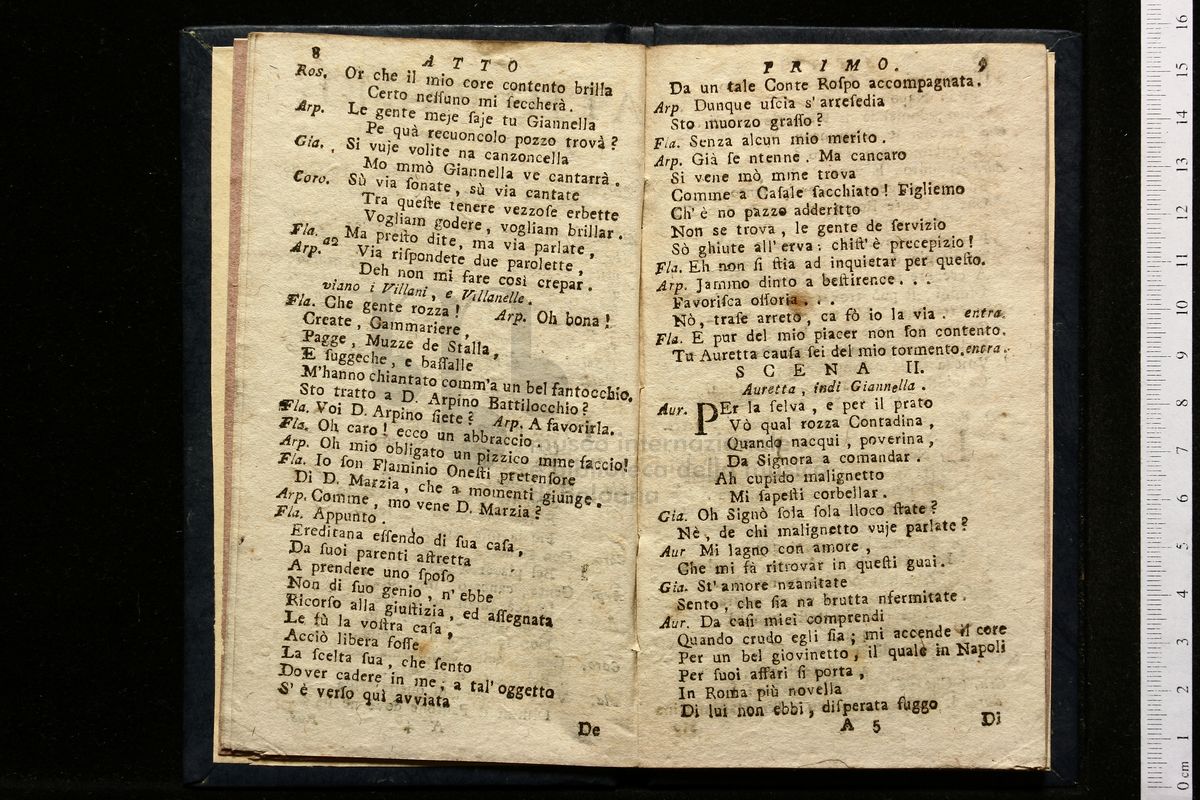 8
ATTO
Ros. Or che il mio core contento brilla
Certo neſſuno mi ſeccherà.
Arp. Le gente meje ſaje tu Giannella
Pe quà recuoncolo pozzo trovà?
Gia. Si vuje volite na canzoncella
Mo mmò Giannella ve cantarrà.
Coro. Sù via ſonate, sù via cantate
Tra queſte tenere vezzoſe erbette
Vogliam godere, vogliam brillar.
Fla. Ma preſto dite, ma via parlate,
Arp. a2 Via riſpondete due parolette,
Deh non mi fare così crepar.
viano i Villani, e Villanelle.
Fla. Che gente rozza! Arp. Oh bona!
Create, Gammariere,
Pagge, Muzze de Stalla,
E ſuggeche, e baſſalle
M'hanno chiantato comm'a un bel fantocchio.
Sto tratto a D. Arpino Battilocchio?
Fla. Voi D. Arpino ſiete? Arp. A favorirla.
Fla. Oh caro! ecco un abbraccio.
Arp. Oh mio obligato un pizzico mme ſaccio!
Fla. Io ſon Flaminio Oneſti pretenſore
Di D. Marzia, che a momenti giunge.
Arp. Comme, mo vene D. Marzia?
Fla. Appunto.
Ereditana eſſendo di ſua caſa,
Da ſuoi parenti aſtretta
A prendere uno ſpoſo
Non di ſuo genio, n'ebbe
Ricorſo alla giuſtizia, ed aſſegnata
Le fù la voſtra caſa,
Acciò libera foſſe
La ſcelta ſua, che ſento
Dover cadere in me; a tal'oggetto
S'è verſo quì avviata
De
PRIMO.
9
Da un tale Conte Roſpo accompagnata.
Arp Dunque uſcia s'arreſedia
Sto muorzo graſſo?
Fla. Senza alcun mio merito.
Arp. Già ſe ntenne. Ma cancaro
Si vene mò, mme trova
Comme a Caſale ſacchiato! Figliemo
Ch'è no pazzo adderitto
Non se trova, le gente de ſervizio
Sò ghiute all'erva: chiſt'è precepizio!
Fla. Eh non ſi ſtia ad inquietar per queſto.
Arp. Jammo dinto a beſtirence...
Favoriſca oſſoria...
Nò, traſe arreto, ca fò io la via. entra.
Fla. E pur del mio piacer non ſon contento.
Tu Auretta cauſa ſei del mio tormento. entra.
SCENA II.
Auretta, indi Giannella.
Aur. PEr la ſelva, e per il prato
Vò qual rozza Contadina,
Quando nacqui, poverina,
Da Signora a comandar.
Ah cupido malignetto
Mi ſapeſti corbellar.
Gia. Oh Signò ſola ſola lloco ſtate?
Nè, de chi malignetto vuje parlate?
Aur Mi lagno con amore,
Che mi fà ritrovar in queſti guai.
Gia. St'amore nzanitate
Sento, che ſia na brutta nfermitate.
Aur. Da caſi miei comprendi
Quando crudo egli ſia; mi accende il core
Per un bel giovinetto, il quale in Napoli
Per ſuoi affari ſi porta,
In Roma più novella
Di lui non ebbi, diſperata fuggo
A 5
Di